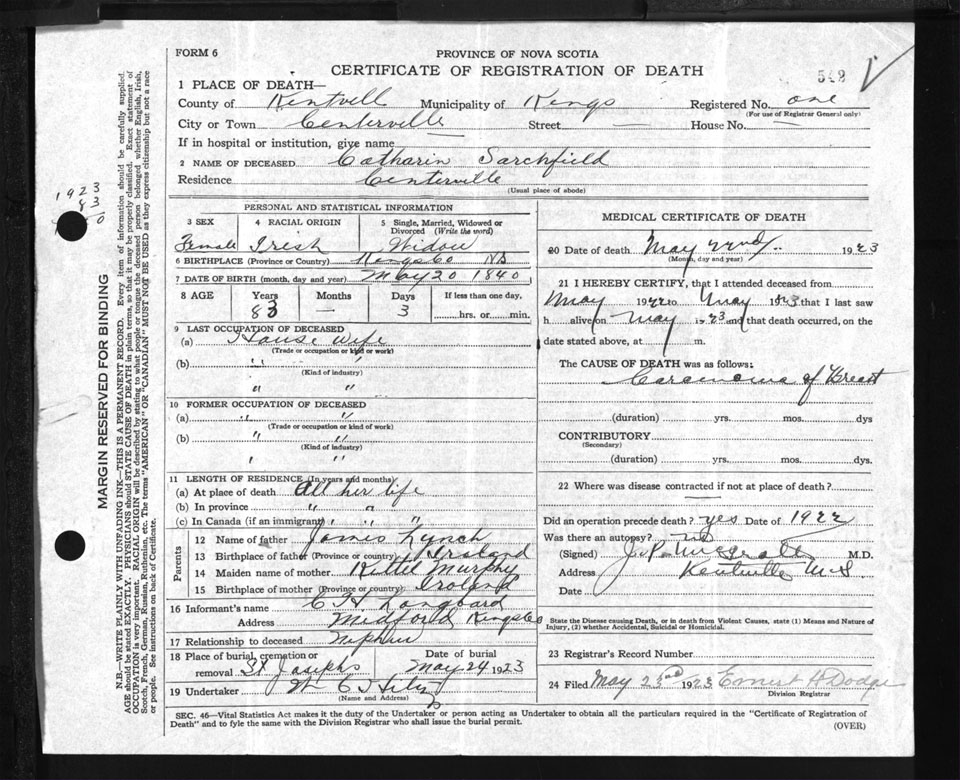 FORM 6
PROVINCE OF NOVA SCOTIA
CERTIFICATE OF REGISTRATION OF DEATH
542
1 PLACE OF DEATH—
County of Kentvell Municipality of Kings Registered No. one
(For use of Registrar General only)
City or Town Centerville Street — House No. —
If in hospital or institution, give name
2 NAME OF DECEASED Catharin Sarchfield
Residence Centerville
(Usual place of abode)
PERSONAL AND STATISTICAL INFORMATION
3 SEX 4 RACIAL ORIGIN 5 Single, Married, Widowed or Divorced (Write the word)
Female Irish Widow
6 BIRTHPLACE (Province or Country) Kings Co NS
7 DATE OF BIRTH (month, day and year) May 20 1840
8 AGE Years Months Days If less than one day,
83 — 3 hrs. or min.
9 LAST OCCUPATION OF DECEASED
(a) House wife
(Trade or occupation or kind or work)
(b) " "
(Kind of industry)
" "
10 FORMER OCCUPATION OF DECEASED
(a) " "
(Trade or occupation or kind of work)
(b) " "
(Kind of industry)
" "
11 LENGTH OF RESIDENCE (In years and months)
(a) At place of death all her life
(b) In province " "
(c) In Canada (if an immigrant) " " "
Parents
12 Name of father James Lynch
13 Birthplace of father (Province or country) Ireland
14 Maiden name of mother Kittie Murphy
15 Birthplace of mother (Province or country) Iroland
16 Informant's name C H
Address Kings Co
17 Relationship to deceased Nephew
18 Place of burial, cremation or removal St Josephs
Date of burial May 24 1923
19 Undertaker
(Name and Address)
MEDICAL CERTIFICATE OF DEATH
20 Date of death May 22nd 1923
(Month, day and year)
21 I HEREBY CERTIFY, that I attended deceased from
May 1922 to May 1923 that I last saw
h alive on May 1923 and that death occurred, on the
date stated above, at m.
The CAUSE OF DEATH was as follows:
Carcinoma of Breast
(duration) yrs. mos. dys
CONTRIBUTORY
(Secondary)
(duration) yrs. mos. dys.
22 Where was disease contracted if not at place of death?
Did an operation precede death? yes Date of 1922
Was there an autopsy? no
(Signed) M.D.
Address Kentville N.S.
Date
State the Disease causing Death, or in death from Violent Causes, state (1) Means and Nature of
Injury, (2) whether Accidental, Suicidal or Homicidal.
23 Registrar's Record Number
24 Filed May 23rd 1923 Ernest H Dodge
Division Registrar
SEC. 46—Vital Statistics Act makes it the duty of the Undertaker or person acting as Undertaker to obtain all the particulars required in the "Certificate of Registration of
Death" and to fyle the same with the Division Registrar who shall issue the burial permit.
(OVER)
MARGIN RESERVED FOR BINDING
N.B.—WRITE PLAINLY WITH UNFADING INK—THIS IS A PERMANENT RECORD. Every item of information should be carefully supplied.
AGE should be stated EXACTLY. PHYSICIANS should STATE CAUSE OF DEATH in plain terms, so that it may be properly classified. Exact statement of
OCCUPATION is very important. RACIAL ORIGIN will be described by stating to what people or tongue the deceased person belonged whether English, Irish,
Scotch, French, German, Russian, Ruthenian, etc. The terms "AMERICAN" OR "CANADIAN" MUST NOT BE USED as they express citizenship but not a race
or people. See instructions on back of Certificate.
1923
83